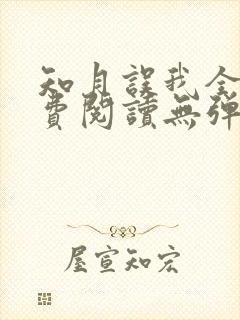 知月誤我全
費閱讀無彈
屋宣知宏